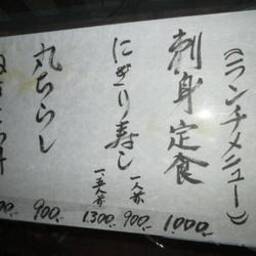 (ランチメニュー)
刺身定食 1000.-
にぎり寿し 一人前 900.-
一、五人前 1.300.-
丸ちらし 900.-